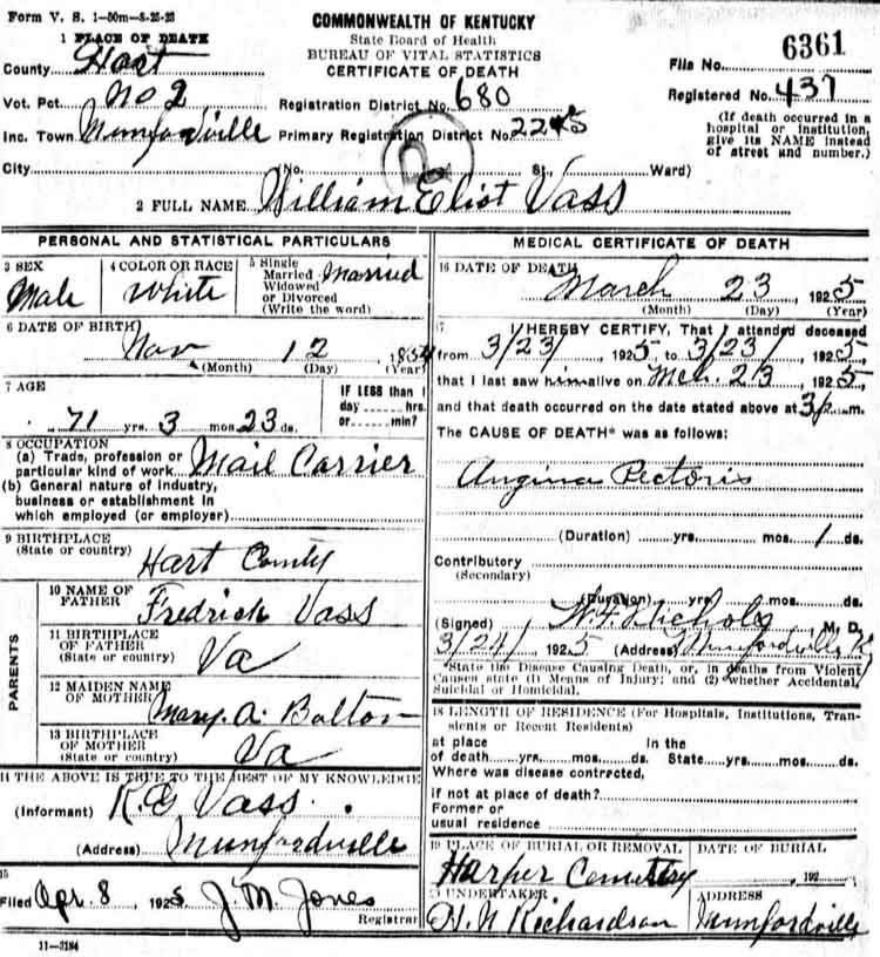 Form V. S. 1-50m-8-25-23
1 PLACE OF DEATH
COMMONWEALTH OF KENTUCKY
State Board of Health
BUREAU OF VITAL STATISTICS
CERTIFICATE OF DEATH
File No. 6361
Registered No. 437
(If death occurred in a
hospital or institution,
give its NAME instead
of street and number.)
County Hart
Vot. Pct. No 2
Registration District No. 680
Inc. Town Munfordville Primary Registration District No. 2245
City (No. St., Ward)
2 FULL NAME William Eliot Vass
PERSONAL AND STATISTICAL PARTICULARS
3 SEX
Male
4 COLOR OR RACE
White
5 Single
Married
Widowed
or Divorced
(Write the word)
Married
6 DATE OF BIRTH
Nov 12, 1854
(Month) (Day) (Year)
7 AGE
71 yrs. 3 mos. 23 ds.
IF LESS than 1
day hrs.
or min?
8 OCCUPATION
(a) Trade, profession or
particular kind of work Mail Carrier
(b) General nature of industry,
business or establishment in
which employed (or employer)
9 BIRTHPLACE
(State or country) Hart County
PARENTS
10 NAME OF
FATHER Fredrick Vass
11 BIRTHPLACE
OF FATHER
(State or country) Va
12 MAIDEN NAME
OF MOTHER Mary. A. Bolton
13 BIRTHPLACE
OF MOTHER
(State or country) Va
14 THE ABOVE IS TRUE TO THE BEST OF MY KNOWLEDGE
(Informant) Vass
(Address) Munfordville
15
Filed Apr. 8, 1925 J. M. Jones
Registrar
11-3184
MEDICAL CERTIFICATE OF DEATH
16 DATE OF DEATH
March 23, 1925
(Month) (Day) (Year)
17 I HEREBY CERTIFY, That I attended deceased
from 3/23/, 1925, to 3/23/, 1925,
that I last saw him alive on Mch. 23, 1925,
and that death occurred on the date stated above at 3 p. m.
The CAUSE OF DEATH* was as follows:
Angina Pectoris
(Duration) yrs. mos. 1 ds.
Contributory
(Secondary)
(Duration) yrs. mos. ds.
(Signed) Nichols M. D.
3/24/, 1925 (Address) Munfordville Ky
*State the Disease Causing Death, or, in deaths from Violent
Causes state (1) Means of Injury; and (2) whether Accidental,
Suicidal or Homicidal.
18 LENGTH OF RESIDENCE (For Hospitals, Institutions, Tran-
sients or Recent Residents)
at place In the
of death yrs. mos. ds. State yrs. mos. ds.
Where was disease contracted,
if not at place of death?
Former or
usual residence
19 PLACE OF BURIAL OR REMOVAL
Harper Cemetery
DATE OF BURIAL
, 192
20 UNDERTAKER
H. N Richardson
ADDRESS
Munfordville